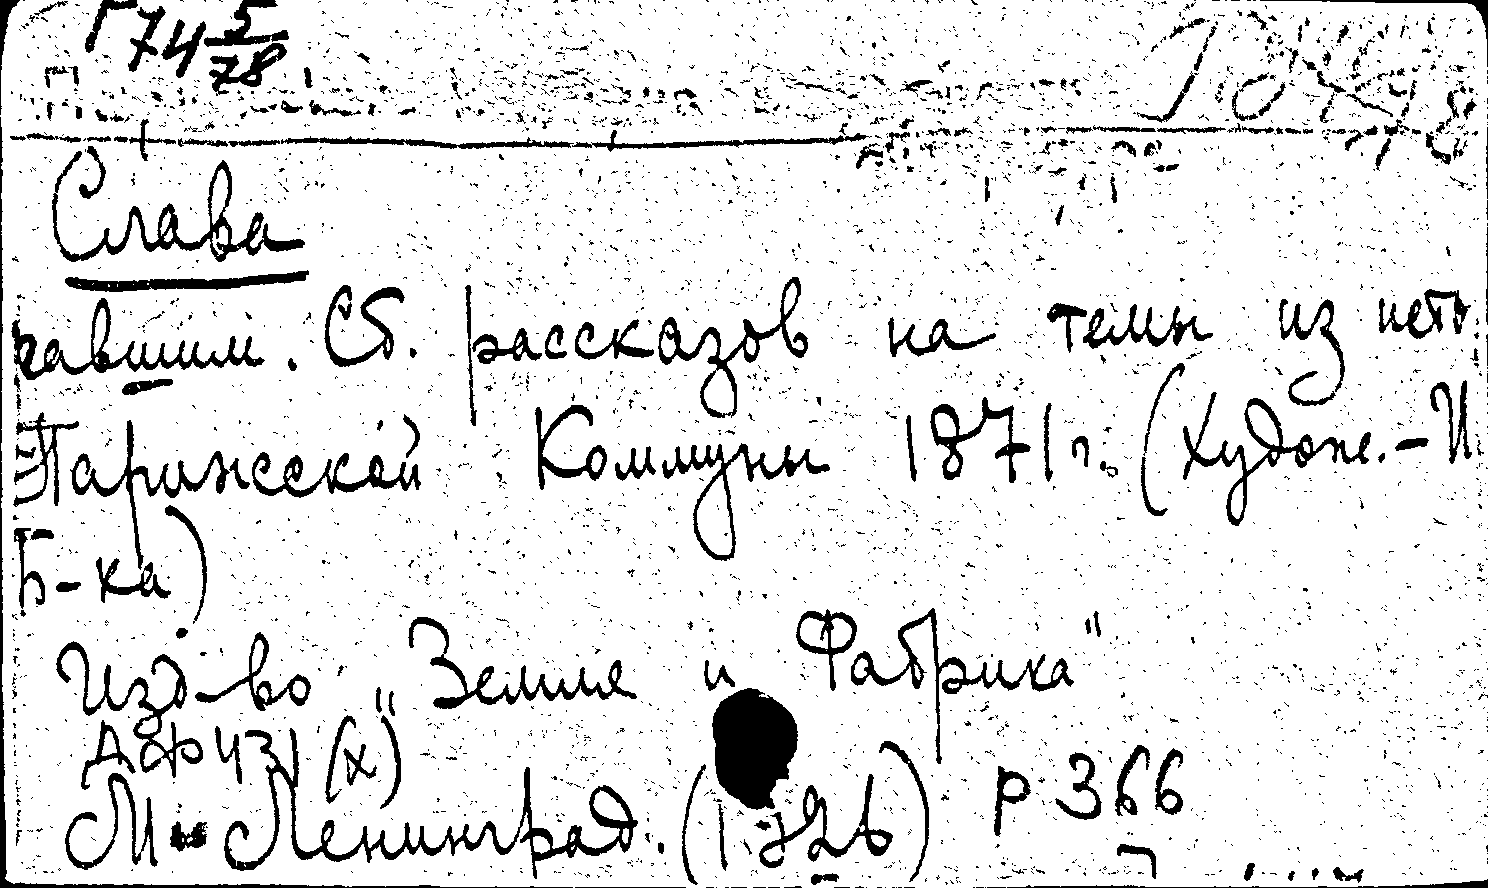 Г74 5/78
Слава
павшим. Сб. рассказов на темы из ист
Парижской Коммуны 1871 г. (Худож.-И
Б-ка)
Изд-во „Земля и Фабрика"
(х)
М-Ленинград. (1926) Р 366